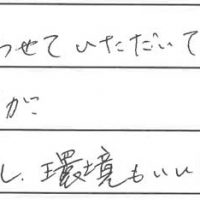 わせていただいて
が
し、環境もいい